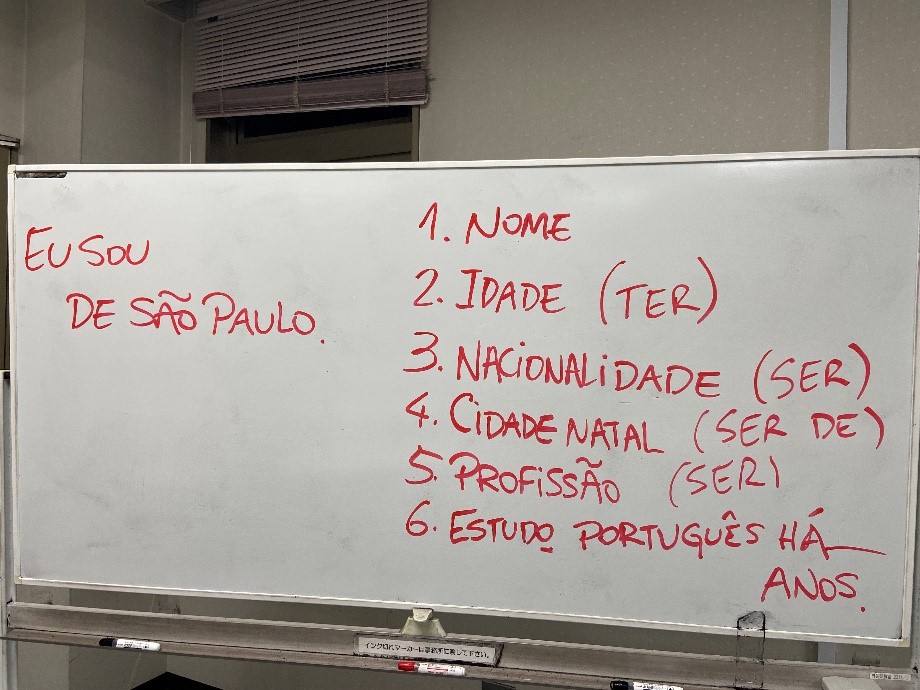 EU SOU
DE SÃO PAULO.
1. NOME
2. IDADE (TER)
3. NACIONALIDADE (SER)
4. CIDADE NATAL (SER DE)
5. PROFISSÃO (SER)
6. ESTUDO PORTUGUÊS HÁ__
ANOS.
インク切れマーカーは事務所に返して下さい。